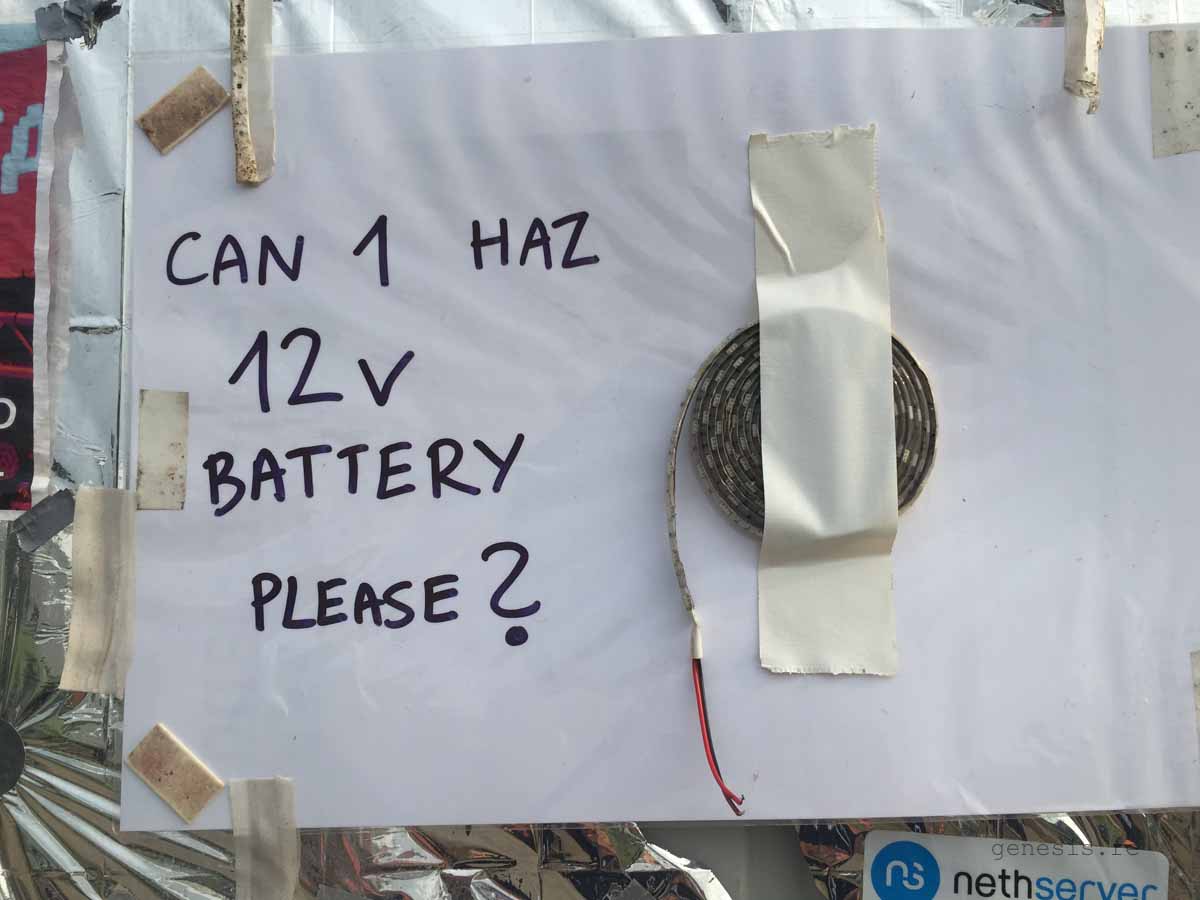 CAN 1 HAZ
12v
BATTERY
PLEASE?
genesis.re
nethserver